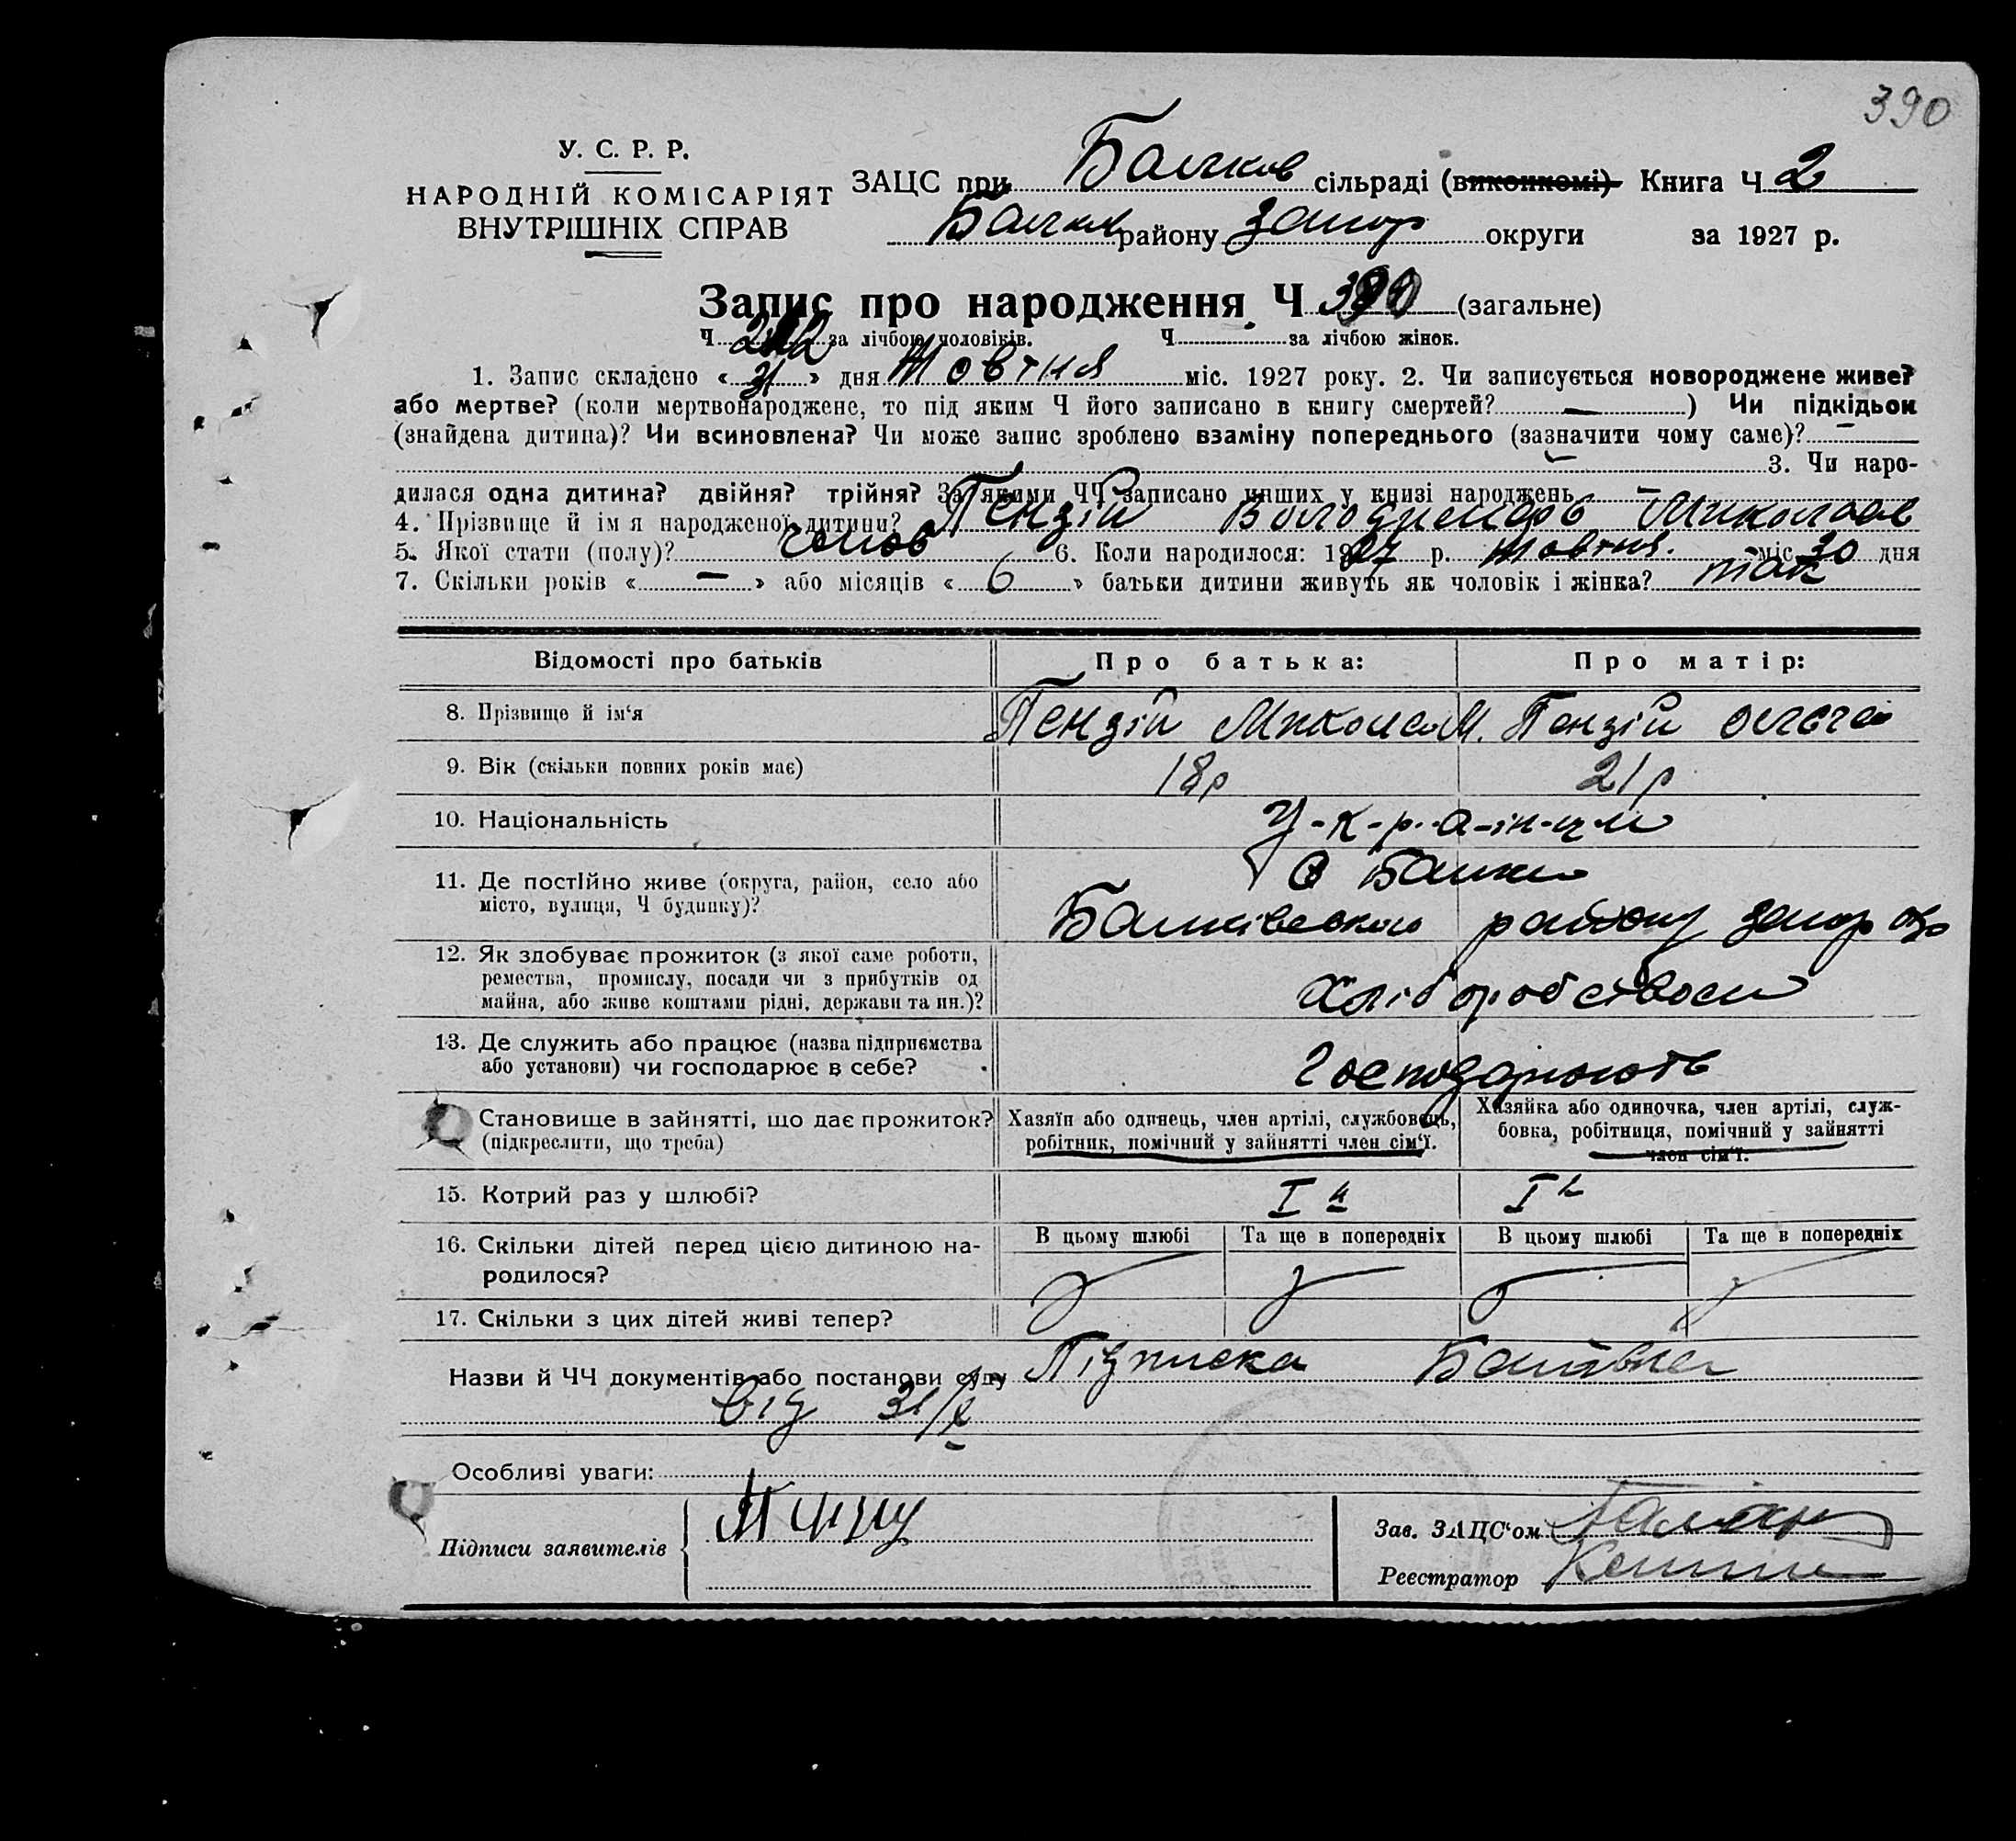 390
У. С. Р. Р.
НАРОДНІЙ КОМІСАРІЯТ
ВНУТРІШНІХ СПРАВ
ЗАЦС при Балков сільраді (виконкомі) Книга Ч 2
Балков району Запор округи за 1927 р.
Запис про народження Ч 390 (загальне)
Ч за лічбою чоловіків. Ч за лічбою жінок.
1. Запис складено « 31 » дня Жовтня міс. 1927 року. 2. Чи записується новороджене живе?
або мертве? (коли мертвонароджене, то під яким Ч його записано в книгу смертей? — ) Чи підкідьок
(знайдена дитина)? Чи всиновлена? Чи може запис зроблено взаміну попереднього (зазначити чому саме)? —
— 3. Чи наро-
дилася одна дитина? двійня? трійня? За якими ЧЧ записано инших у книзі народжень —
4. Прізвище й імя народженої дитини? Пензій Володимир Миколаєв
5. Якої стати (полу)? чолов 6. Коли народилося: 1927 р. жовтня міс 30 дня
7. Скільки років « — » або місяців « 6 » батьки дитини живуть як чоловік і жінка? так
Відомості про батьків Про батька: Про матір:
8. Прізвище й ім'я Пензій Микола М. Пензій
9. Вік (скільки повних років має) 18р 21р
10. Національність У-к-р-а-ін-ци
11. Де постійно живе (округа, район, село або
місто, вулиця, Ч будинку)?
с Балки
Балківського району запор окр
12. Як здобуває прожиток (з якої саме роботи,
ремества, промислу, посади чи з прибутків од
майна, або живе коштами рідні, держави та ин.)?
Хліборобством
13. Де служить або працює (назва підприємства
або установи) чи господарює в себе?
Господарюють
Становище в зайнятті, що дає прожиток?
(підкреслити, що треба)
Хазяїн або одинець, член артілі, службовець,
робітник, помічний у зайнятті член сім'ї.
Хазяйка або одиночка, член артілі, служ-
бовка, робітниця, помічний у зайнятті
член сім'ї.
15. Котрий раз у шлюбі? I й I
16. Скільки дітей перед цією дитиною на-
родилося?
В цьому шлюбі Та ще в попередніх В цьому шлюбі Та ще в попередніх
17. Скільки з цих дітей живі тепер?
Назви й ЧЧ документів або постанови суду Підписка
від 31/X
Особливі уваги:
Підписи заявителів
Зав. ЗАЦС'ом
Реєстратор